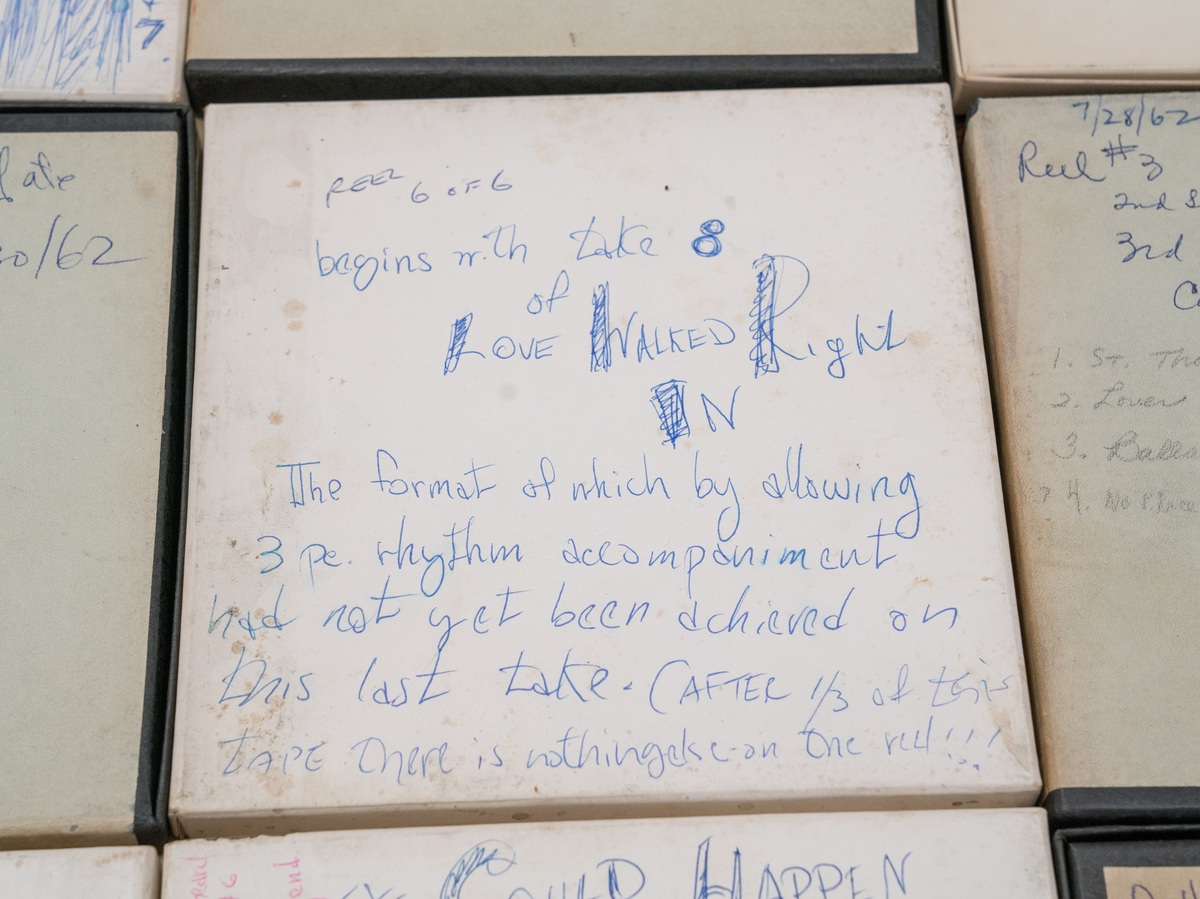 7
REEL 6 OF 6
begins with take 8
of
LOVE WALKED Right
IN
The format of which by allowing
3 pc. rhythm accompaniment
had not yet been achieved on
this last take. (AFTER 1/3 of this
TAPE there is nothing else on the reel!!!
late
/62
7/28/62
Reel #3
2nd
3rd
1. St. Tho
2. Lover
3. Balla
4. No
COULD HAPPEN